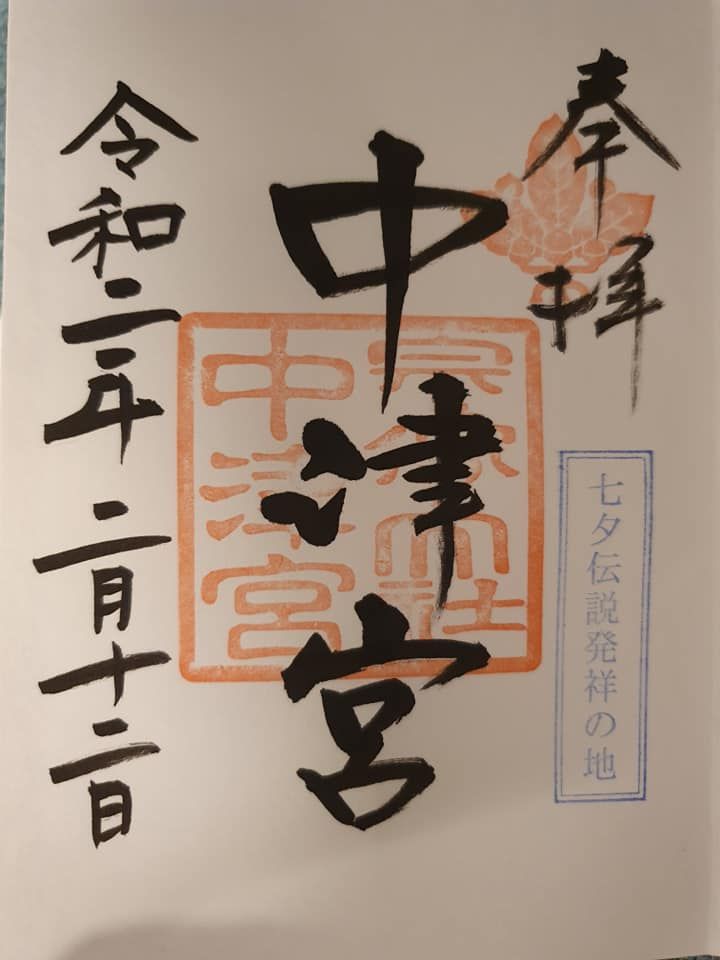 奉拝
七夕伝説発祥の地
中津宮
宗像大社
中津宮
令和二年二月十二日